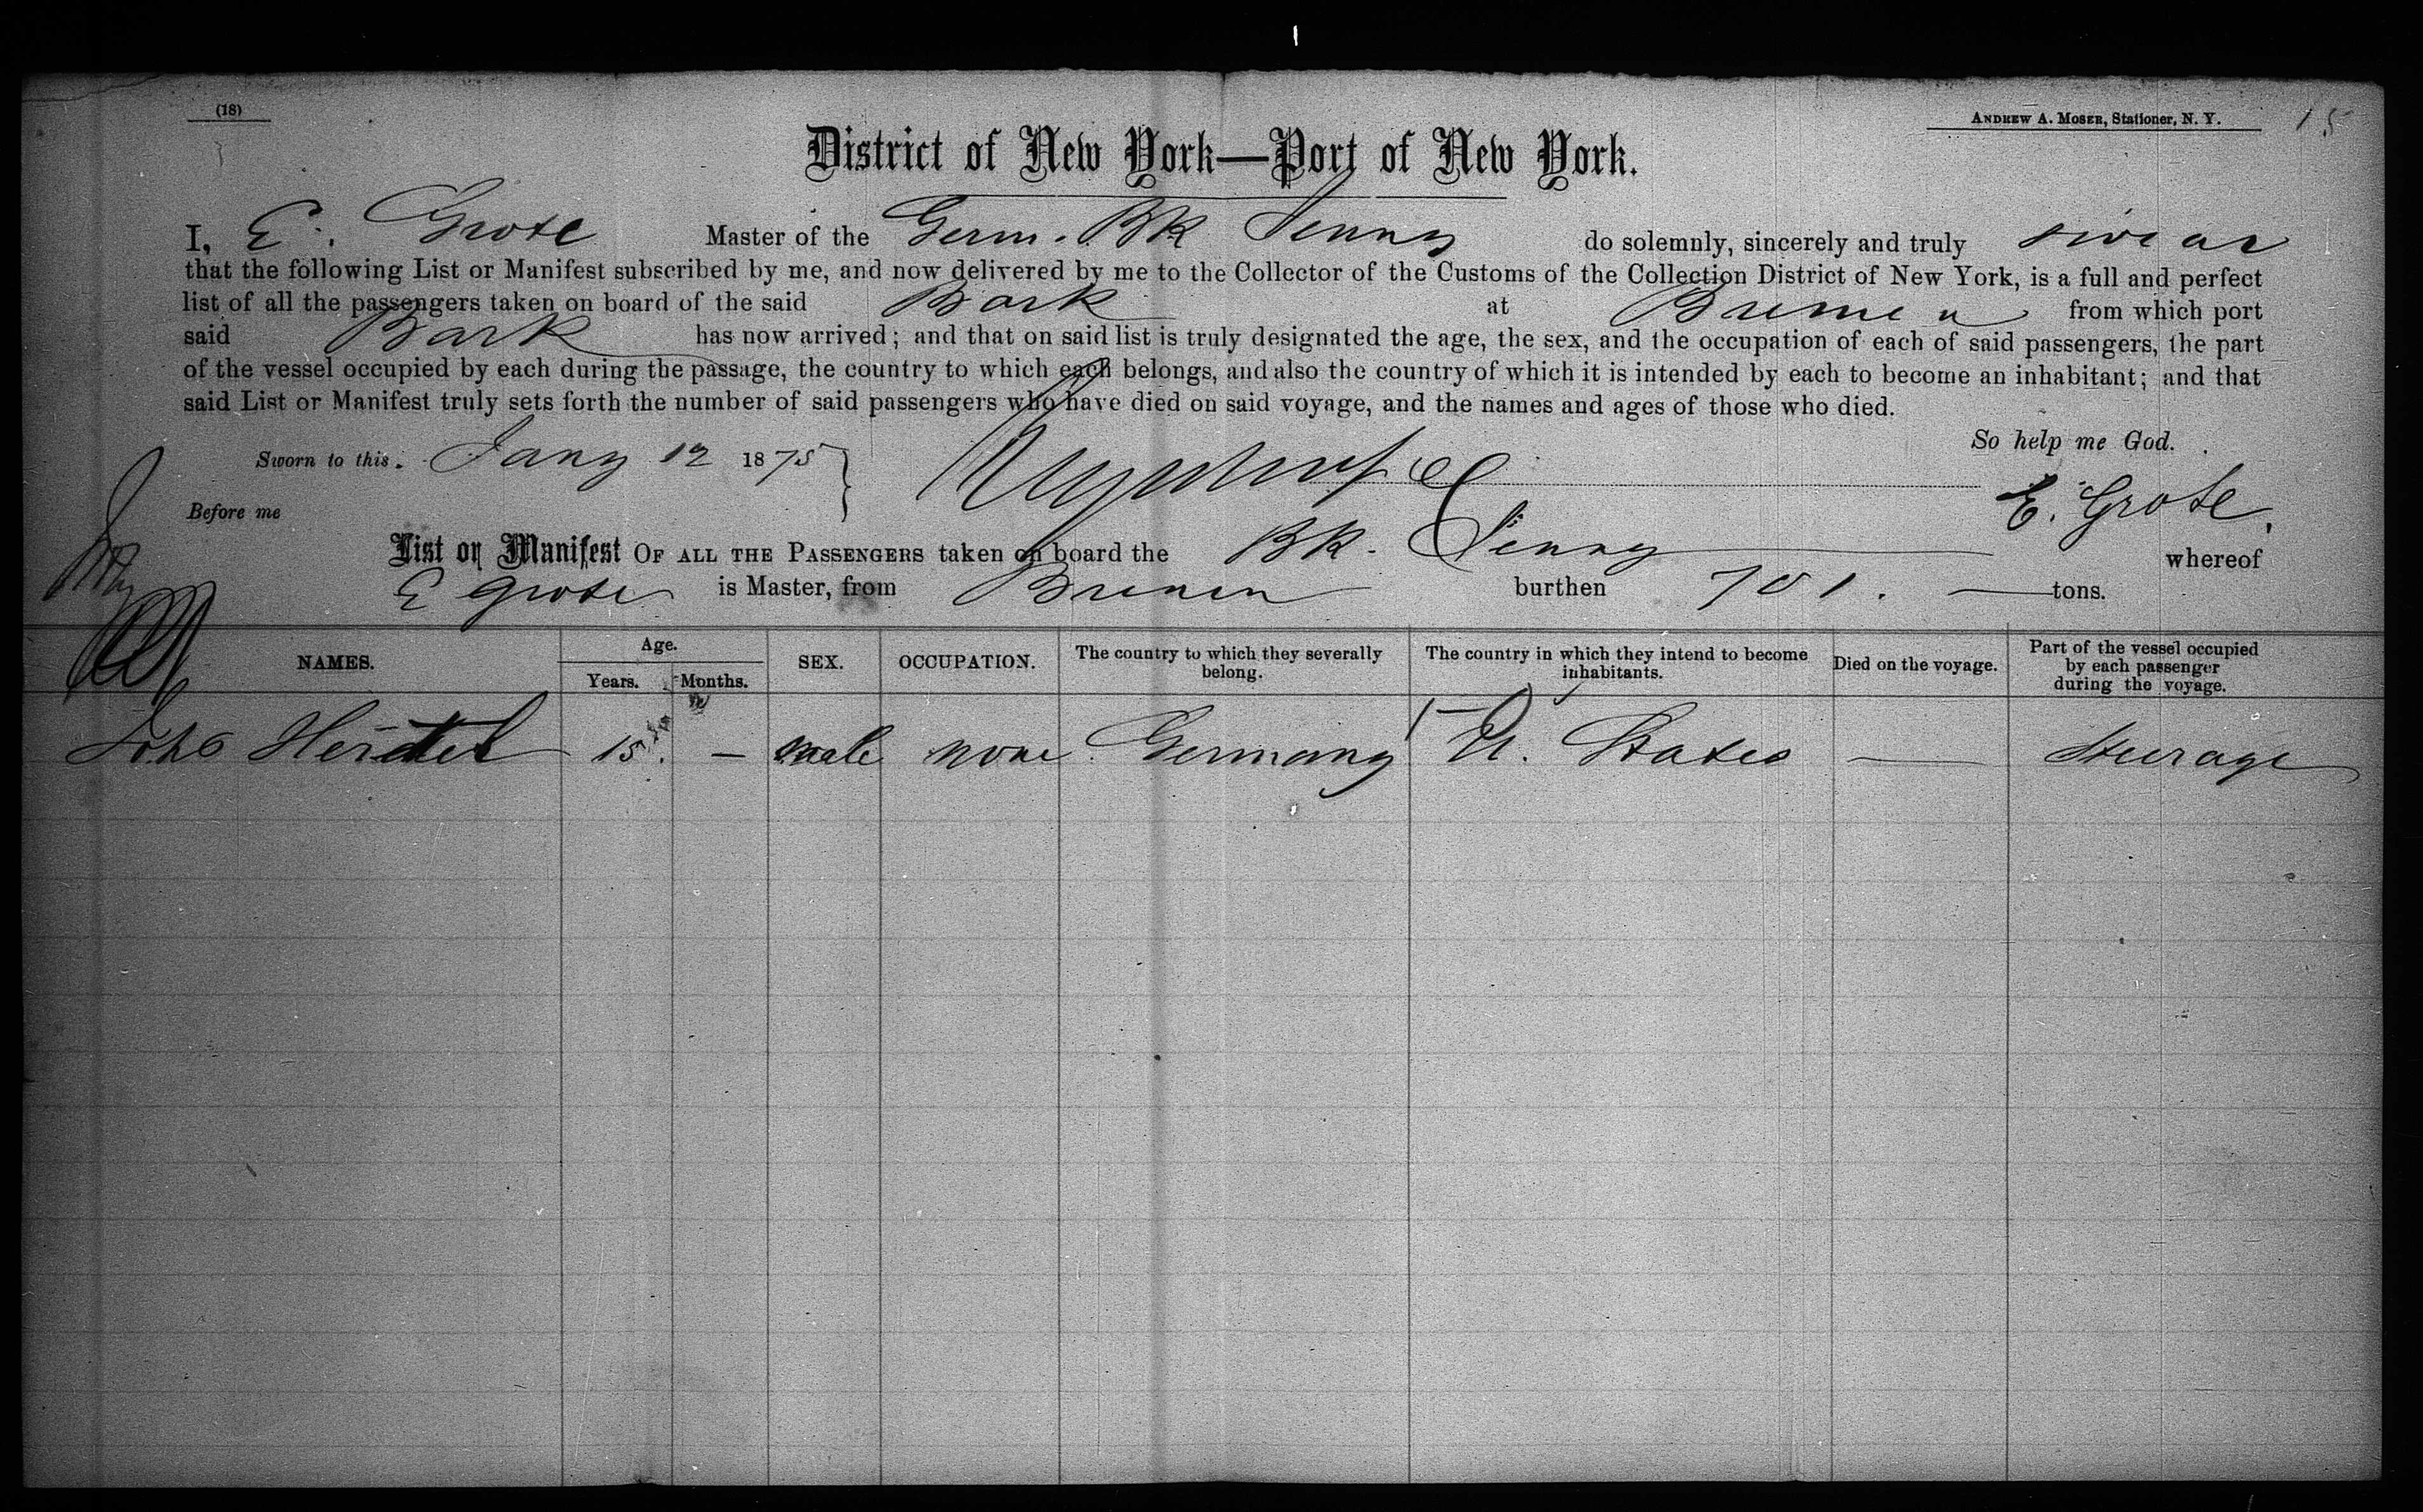 (18)
ANDREW A. MOSER, Stationer, N. Y. 15
District of New York—Port of New York.
I, E. Grote Master of the Germ. BK Jenny do solemnly, sincerely and truly swear
that the following List or Manifest subscribed by me, and now delivered by me to the Collector of the Customs of the Collection District of New York, is a full and perfect
list of all the passengers taken on board of the said Bark at Bremen from which port
said Bark has now arrived; and that on said list is truly designated the age, the sex, and the occupation of each of said passengers, the part
of the vessel occupied by each during the passage, the country to which each belongs, and also the country of which it is intended by each to become an inhabitant; and that
said List or Manifest truly sets forth the number of said passengers who have died on said voyage, and the names and ages of those who died.
So help me God.
Sworn to this Jany 12 1875
E. Grote.
Before me
List or Manifest OF ALL THE PASSENGERS taken on board the BK. Jenny whereof
E Grote is Master, from Bremen burthen 701. tons.
NAMES. Age. Years. Months. SEX. OCCUPATION. The country to which they severally belong. The country in which they intend to become inhabitants. Died on the voyage. Part of the vessel occupied by each passenger during the voyage.
15. — male none Germany U. States — Steerage